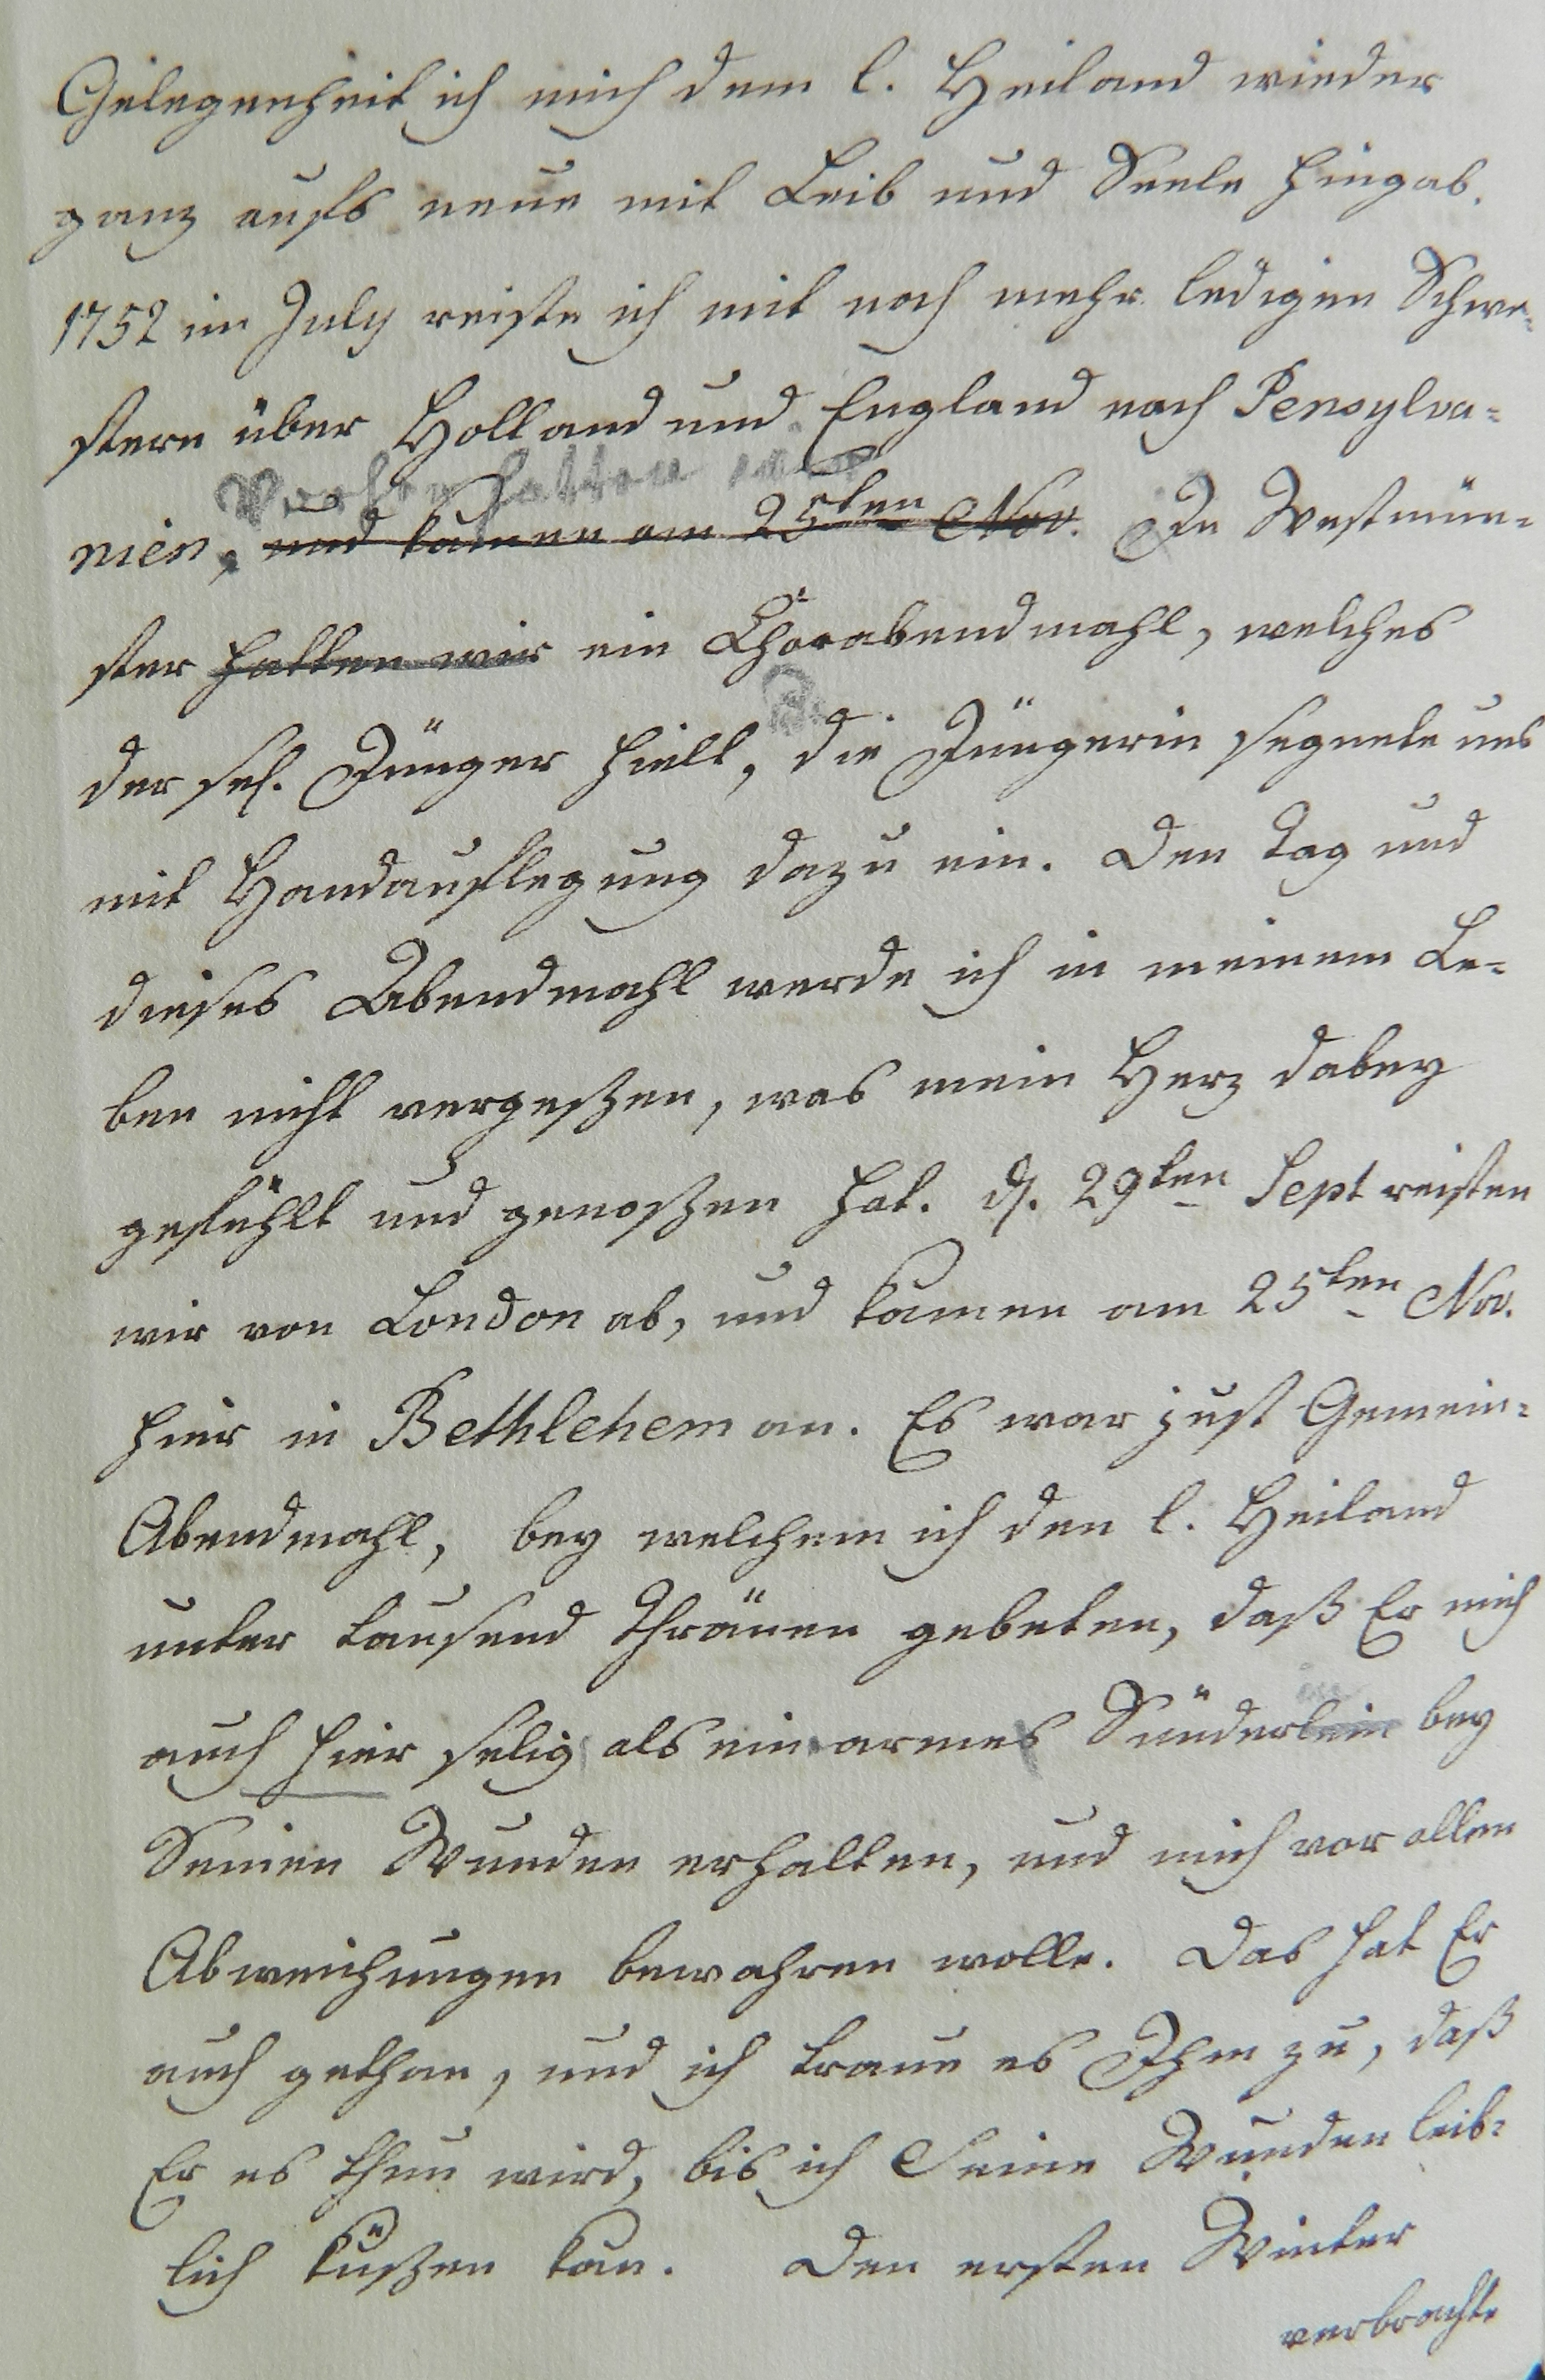 Gelegenheit ich mich dem l. Heiland wieder
ganz aufs neue mit Leib und Seele hingab.
1752 im July reiste ich mit noch mehr ledigen Schwe-
stern über Holland und England nach Pensylva-
Vorher hatten wir
nien, und kamen am 25ten Nov. In Westmün-
ster hatten wir ein Chorabendmahl, welches
der sel. Jünger hielt, die Jüngerin segnete uns
mit Handauflegung dazu ein. Den Tag und
dieses Abendmahl werde ich in meinem Le-
ben nicht vergeßen, was mein Herz dabey
gefühlt und genoßen hat. d. 29ten Sept reisten
wir von London ab, und kamen am 25ten Nov.
hier in Bethlehem an. Es war just Gemein-
Abendmahl, bey welchem ich den l. Heiland
unter tausend Thränen gebeten, daß Er mich
auch hier selig als ein armes Sünderlein bey
Seinen Wunden erhalten, und mich vor allen
Abweichungen bewahren wolle. Das hat Er
auch gethan, und ich traue es Ihm zu, daß
Er es thun wird, bis ich Seine Wunden leib-
lich küßen kan. Den ersten Winter
verbrachte